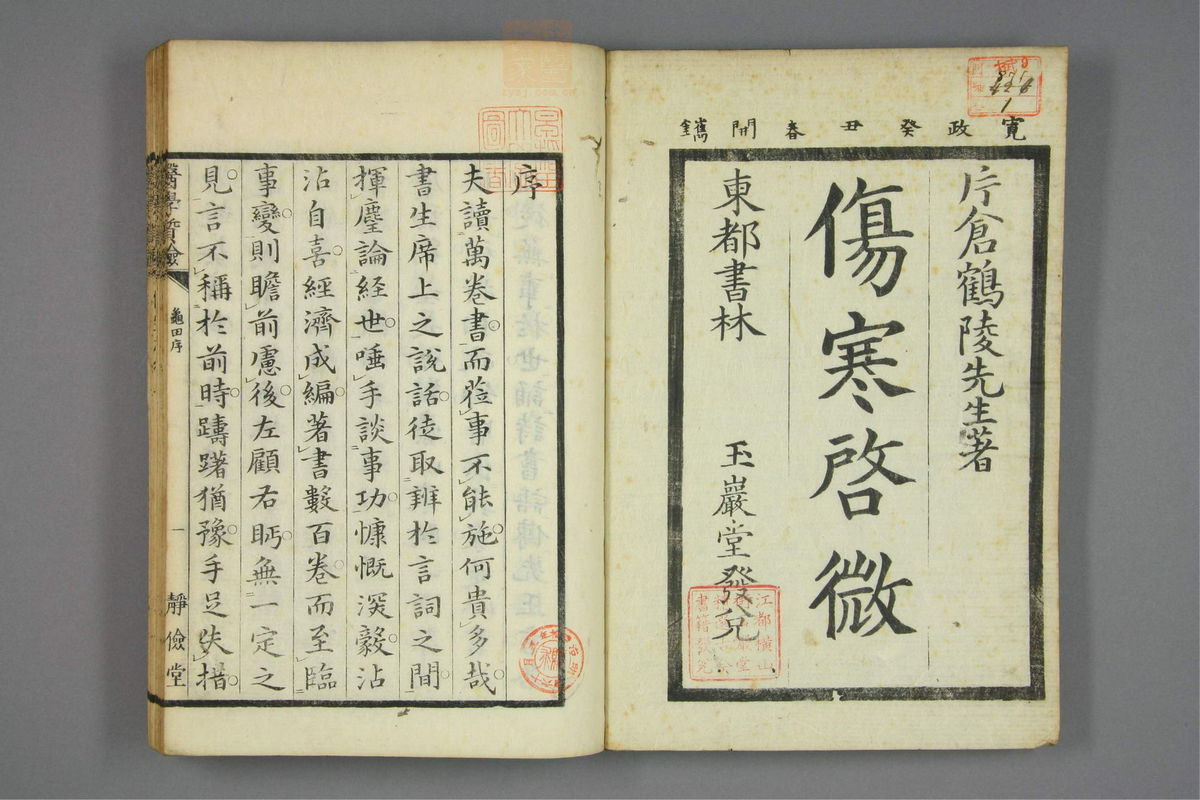 寛政癸丑春開鐫
片倉鶴陵先生著
傷寒啓微
東都書林 玉巖堂發兌
序
夫讀萬卷書而莅事不能施何貴多哉
書生席上之說話徒取辨於言詞之間
揮麈論經世唾手談事功慷慨深毅沾
沾自喜經濟成編著書數百卷而至臨
事變則瞻前慮後左顧右眄無一定之
見言不稱於前時躊躇猶豫手足失措
醫學質驗
龜田序
一
靜儉堂